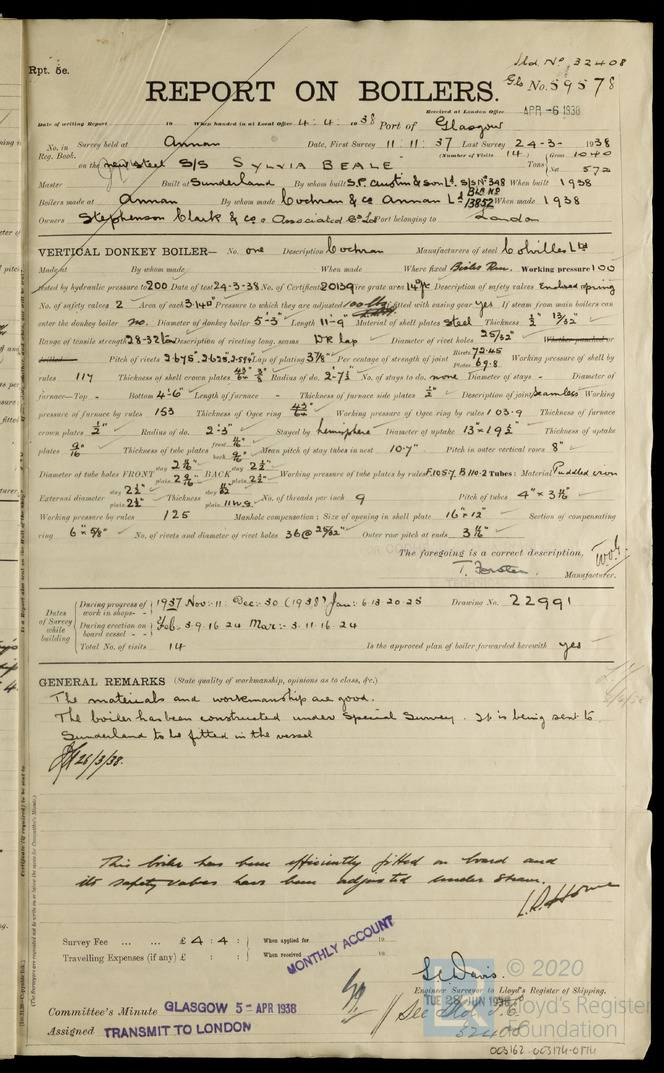 Sld. No. 32408
Rpt. 5e.
Gls No. 59578
REPORT ON BOILERS.
Received at London Office APR -6 1938
Date of writing Report 19 When handed in at Local Office 4: 4: 19 38 Port of Glasgow
No. in Reg. Book. Survey held at Annan Date, First Survey 11: 11: 37 Last Survey 24-3- 1938
(Number of Visits 14) Gross 1040
on the new steel S/S SYLVIA BEALE Tons Net 572
Master Built at Sunderland By whom built S.P. Austin & Son Ld. S/S No 348 When built 1938
Boilers made at Annan By whom made Cochran & Co Annan Ld BLR No 13852 When made 1938
Owners Stephenson Clark & Co & Associated Cos Ld Port belonging to London
VERTICAL DONKEY BOILER— No. one Description Cochran Manufacturers of steel Colvilles Ltd
Made at By whom made When made Where fixed Boiler Room. Working pressure 100
tested by hydraulic pressure to 200 Date of test 24-3-38 No. of Certificate 20139 Fire grate area Description of safety valves Enclosed spring
No. of safety valves 2 Area of each 3.140" Pressure to which they are adjusted 100 lbs If fitted with easing gear yes If steam from main boilers can
enter the donkey boiler no. Diameter of donkey boiler 5'-3" Length 11'-9" Material of shell plates Steel Thickness 1/2" 13/32"
Range of tensile strength 28-32 tons Description of riveting long. seams DR Lap Diameter of rivet holes 25/32" Whether punched or
drilled Pitch of rivets 2.675", 2.625", 2.554" Lap of plating 3 7/8" Per centage of strength of joint Rivets 72.45 Plates 69.8 Working pressure of shell by
rules 117 Thickness of shell crown plates 43/64" 3/8" Radius of do. 2'-7 1/2" No. of stays to do. none Diameter of stays - Diameter of
furnace—Top - Bottom 4'-6" Length of furnace - Thickness of furnace side plates 1/2" Description of joint Seamless Working
pressure of furnace by rules 153 Thickness of Ogee ring 43/64" Working pressure of Ogee ring by rules 103.9 Thickness of furnace
crown plates 1/2" Radius of do. 2'-3" Stayed by hemisphere Diameter of uptake 13" x 19 1/2" Thickness of uptake
plates 9/16 Thickness of tube plates front 11/16" back 9/16" Mean pitch of stay tubes in nest 10.7" Pitch in outer vertical rows 8"
Diameter of tube holes FRONT stay 2 11/16" plain 2 9/16" BACK stay 2 1/2" plain 2 1/2" Working pressure of tube plates by rules F.105.7 B 110.2 Tubes: Material Puddled iron
External diameter stay 2 1/2" plain 2 1/2" Thickness stay plain 11 W.G. No. of threads per inch 9 Pitch of tubes 4" x 3 11/16"
Working pressure by rules 125 Manhole compensation: Size of opening in shell plate 16" x 12" Section of compensating
ring 6" x 5/8" No. of rivets and diameter of rivet holes 36 @ 25/32" Outer row pitch at ends 3 11/16"
The foregoing is a correct description,
T. Forster. Manufacturer.
Dates of Survey while building
During progress of work in shops - - 1937 Nov: 11: Dec: 30 (1938) Jan: 6.13.20.25 Drawing No. 22991
During erection on board vessel - - - Feb: 3.9.16.24 Mar: 3.11.16.24
Total No. of visits 14 Is the approved plan of boiler forwarded herewith yes
GENERAL REMARKS (State quality of workmanship, opinions as to class, &c.)
The materials and workmanship are good.
The boiler has been constructed under Special Survey. It is being sent to
Sunderland to be fitted in the vessel
26/3/38.
This boiler has been efficiently fitted on board and
its safety valves have been adjusted under steam.
Survey Fee ... ... £ 4 : 4 : When applied for 19
Travelling Expenses (if any) £ : : When received 19
MONTHLY ACCOUNT
Engineer Surveyor to Lloyd's Register of Shipping.
TUE 28 JUN 1938
Committee's Minute GLASGOW 5- APR 1938
Assigned TRANSMIT TO LONDON
© 2020
Lloyd's Register
Foundation
003162-003174-0174